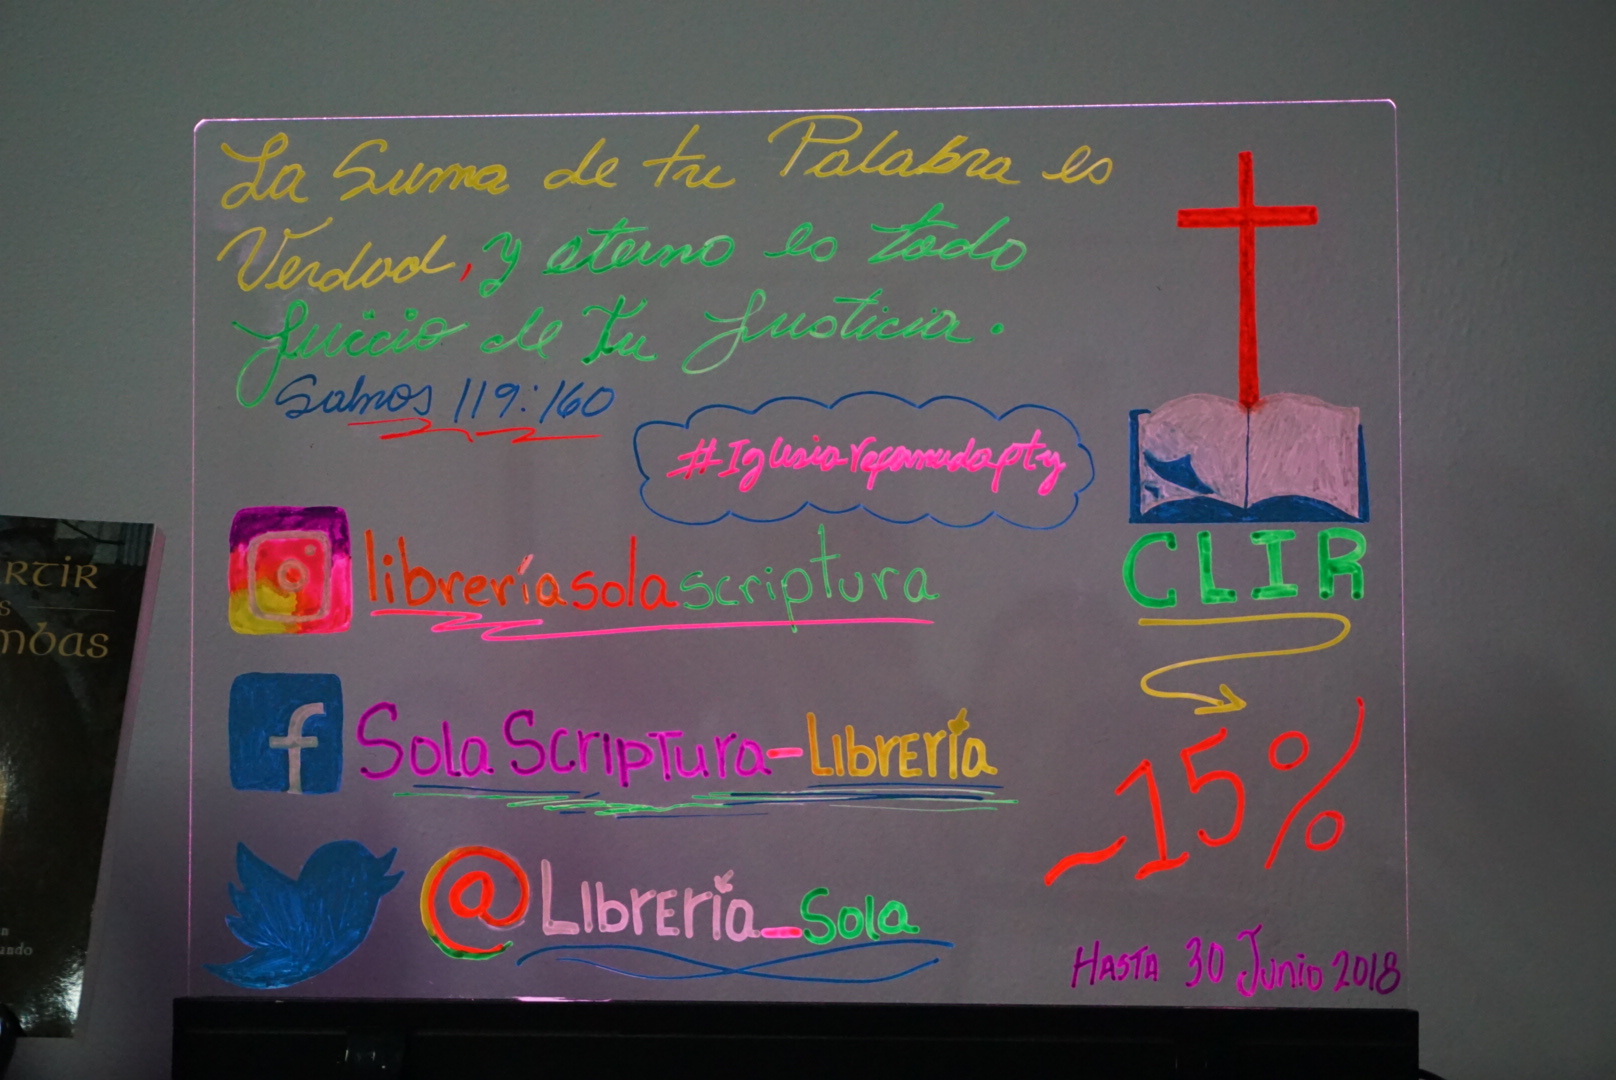 La Suma de tu Palabra es
Verdad, y eterno es todo
Juicio de tu Justicia.
Salmos 119:160
#Iglesiareformadapty
libreríasolascriptura
Sola Scriptura-Librería
@Librería_Sola
CLIR
-15%
Hasta 30 Junio 2018